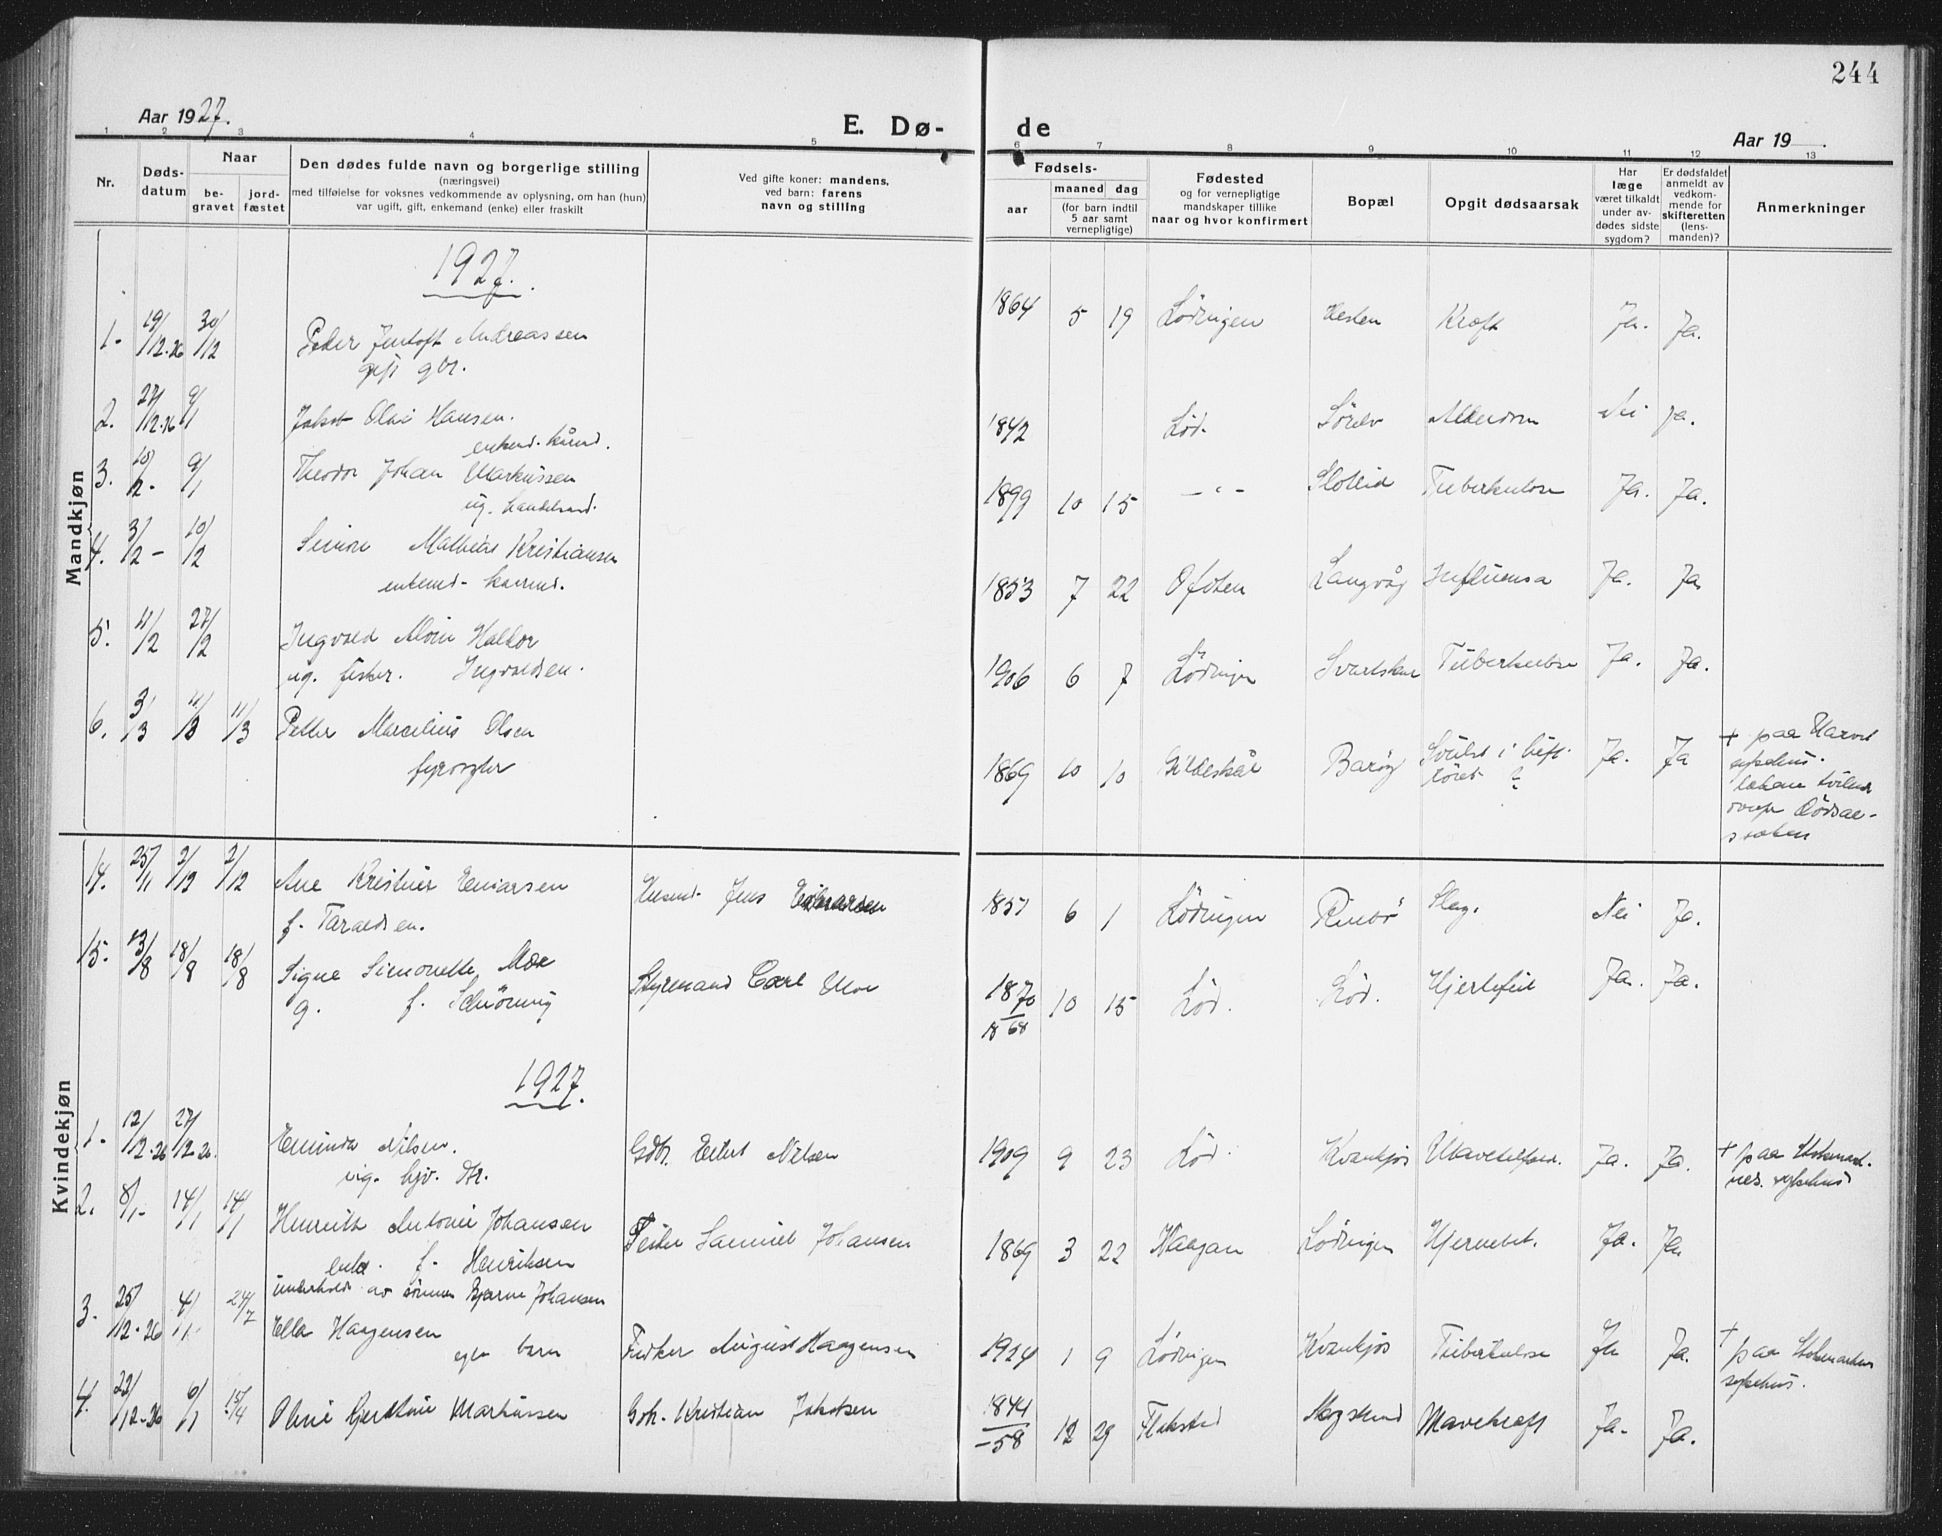 244
Aar 1927.
E. Dø-
de
Aar 19 .
1 2 3 4 5 6 7 8 9 10 11 12 13
Nr.
Døds-
datum
Naar
be-
gravet
jord-
fæstet
Den dødes fulde navn og borgerlige stilling
(næringsvei)
med tilføielse for voksnes vedkommende av oplysning, om han (hun)
var ugift, gift, enkemand (enke) eller fraskilt
Ved gifte koner: mandens,
ved barn: farens
navn og stilling
Fødsels-
aar
maaned dag
(for barn indtil
5 aar samt
vernepligtige)
Fødested
og for vernepligtige
mandskaper tillike
naar og hvor konfirmert
Bopæl
Opgit dødsaarsak
Har
læge
været tilkaldt
under av-
dødes sidste
sygdom?
Er dødsfaldet
anmeldt av
vedkom-
mende for
skifteretten
(lens-
manden)?
Anmerkninger
Mandkjøn
1927.
1. 19/12-26 30/12 Peder Jentoft Andreassen 1864 5 19 Lødingen Kræft Ja. Ja.
gift gbr.
2. 27/12-26 9/1 Jakob Olai Hansen. 1842 Lød. Nei Ja.
enkemd. kårmd.
3. 9/1 Theodor Johan Markussen 1899 10 15 -"- Tuberkulose Ja. Ja.
ug. handelsmd.
4. 3/2 - 10/2 Simon Mathias Kristiansen 1853 7 22 Ofoten Langvåg Influensa Ja. Ja
enkemd. kaarmd.
5. 4/2 27/2 Ingvald Halvor 1906 6 7 Lødingen Tuberkulose Ja. Ja.
ug. fisker. Ingvaldsen.
6. 3/3 11/3 11/3 Petter Marcelius Olsen 1869 10 10 Gildeskål Barøy Svulst i Ja. Ja
fyrvogter ?
+ paa Harst
sykehus.
Kvindekjøn
14. 25/11 2/12 2/12 Ane Kristine Einarsen Jens Einarsen 1857 6 1 Lødingen Rinbø Slag. Nei Ja.
f. Taraldsen.
15. 13/8 18/8 18/8 Signe Simonette Moe Styrmand Carl Moe 1870 10 15 Lød. Lød. Hjertefeil Ja. Ja.
g. f. Schiønning 1868
1927.
1. 12/12-26 27/12-26 Nilsen. Gdbr. Eilert Nilsen 1909 9 23 Lød. Kvankjos Ja. Ja. + paa Stokmark-
ug. nes. sykehus
2. 8/1- 14/1 14/1 Antonie Johansen Fisker Samuel Johansen 1869 3 22 Lødingen Ja. Ja
enke f. Henriksen
underholdt av sønnen Bjarne Johansen
3. 25/12-26 4/1 24/7 Ella Haagensen Fisker August Haagensen 1924 1 9 Lødingen Kvankjos Tuberkulose Ja Ja. + paa
egte barn sykehus.
4. 22/12-26 6/1 15/4 Markussen Gbr. Kristian Jakobsen 1844 12 29 Flakstad Mavekræft Ja. Ja.
-58